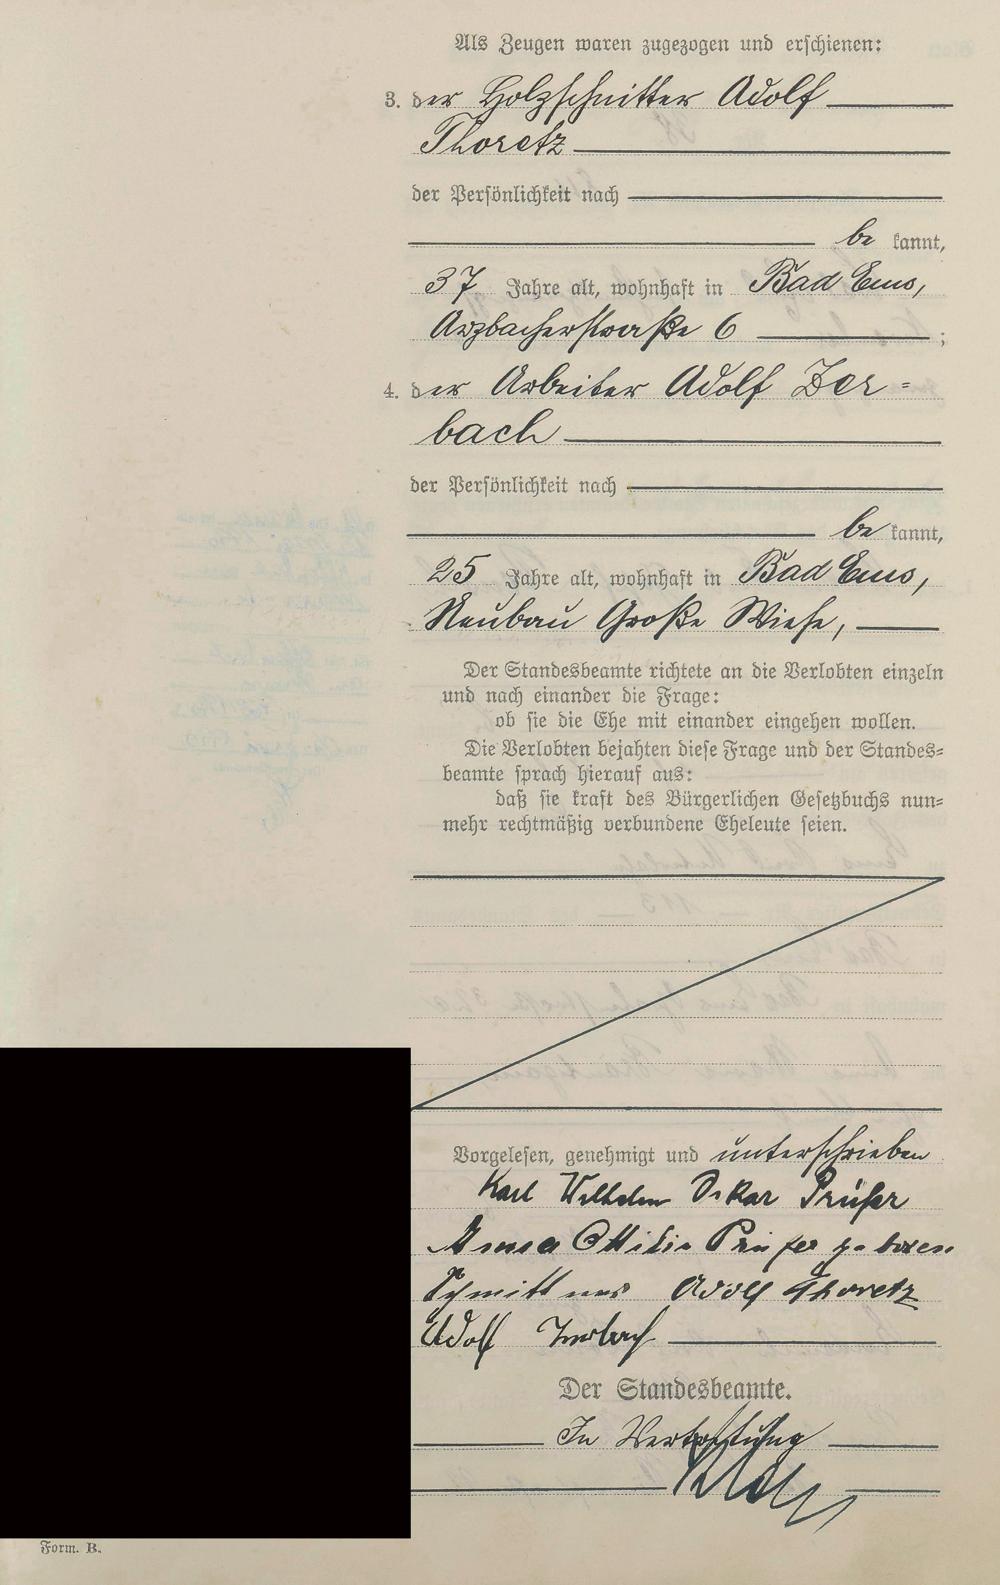 Als Zeugen waren zugezogen und erschienen:
3. der Holzschnitter Adolf
Thoretz
der Persönlichkeit nach
be kannt,
37 Jahre alt, wohnhaft in Bad Ems,
Arzbacherstraße 6 ;
4. der Arbeiter Adolf Zer=
bach
der Persönlichkeit nach
be kannt,
25 Jahre alt, wohnhaft in Bad Ems,
Neubau Große Wiese,
Der Standesbeamte richtete an die Verlobten einzeln
und nach einander die Frage:
ob sie die Ehe mit einander eingehen wollen.
Die Verlobten bejahten diese Frage und der Standes=
beamte sprach hierauf aus:
daß sie kraft des Bürgerlichen Gesetzbuchs nun=
mehr rechtmäßig verbundene Eheleute seien.
Vorgelesen, genehmigt und unterschrieben
Karl Wilhelm Oskar Prüfer
Anna Ottilie Prüfer geboren
Adolf Thoretz
Adolf Zerbach
Der Standesbeamte.
In Vertretung
Form. B.